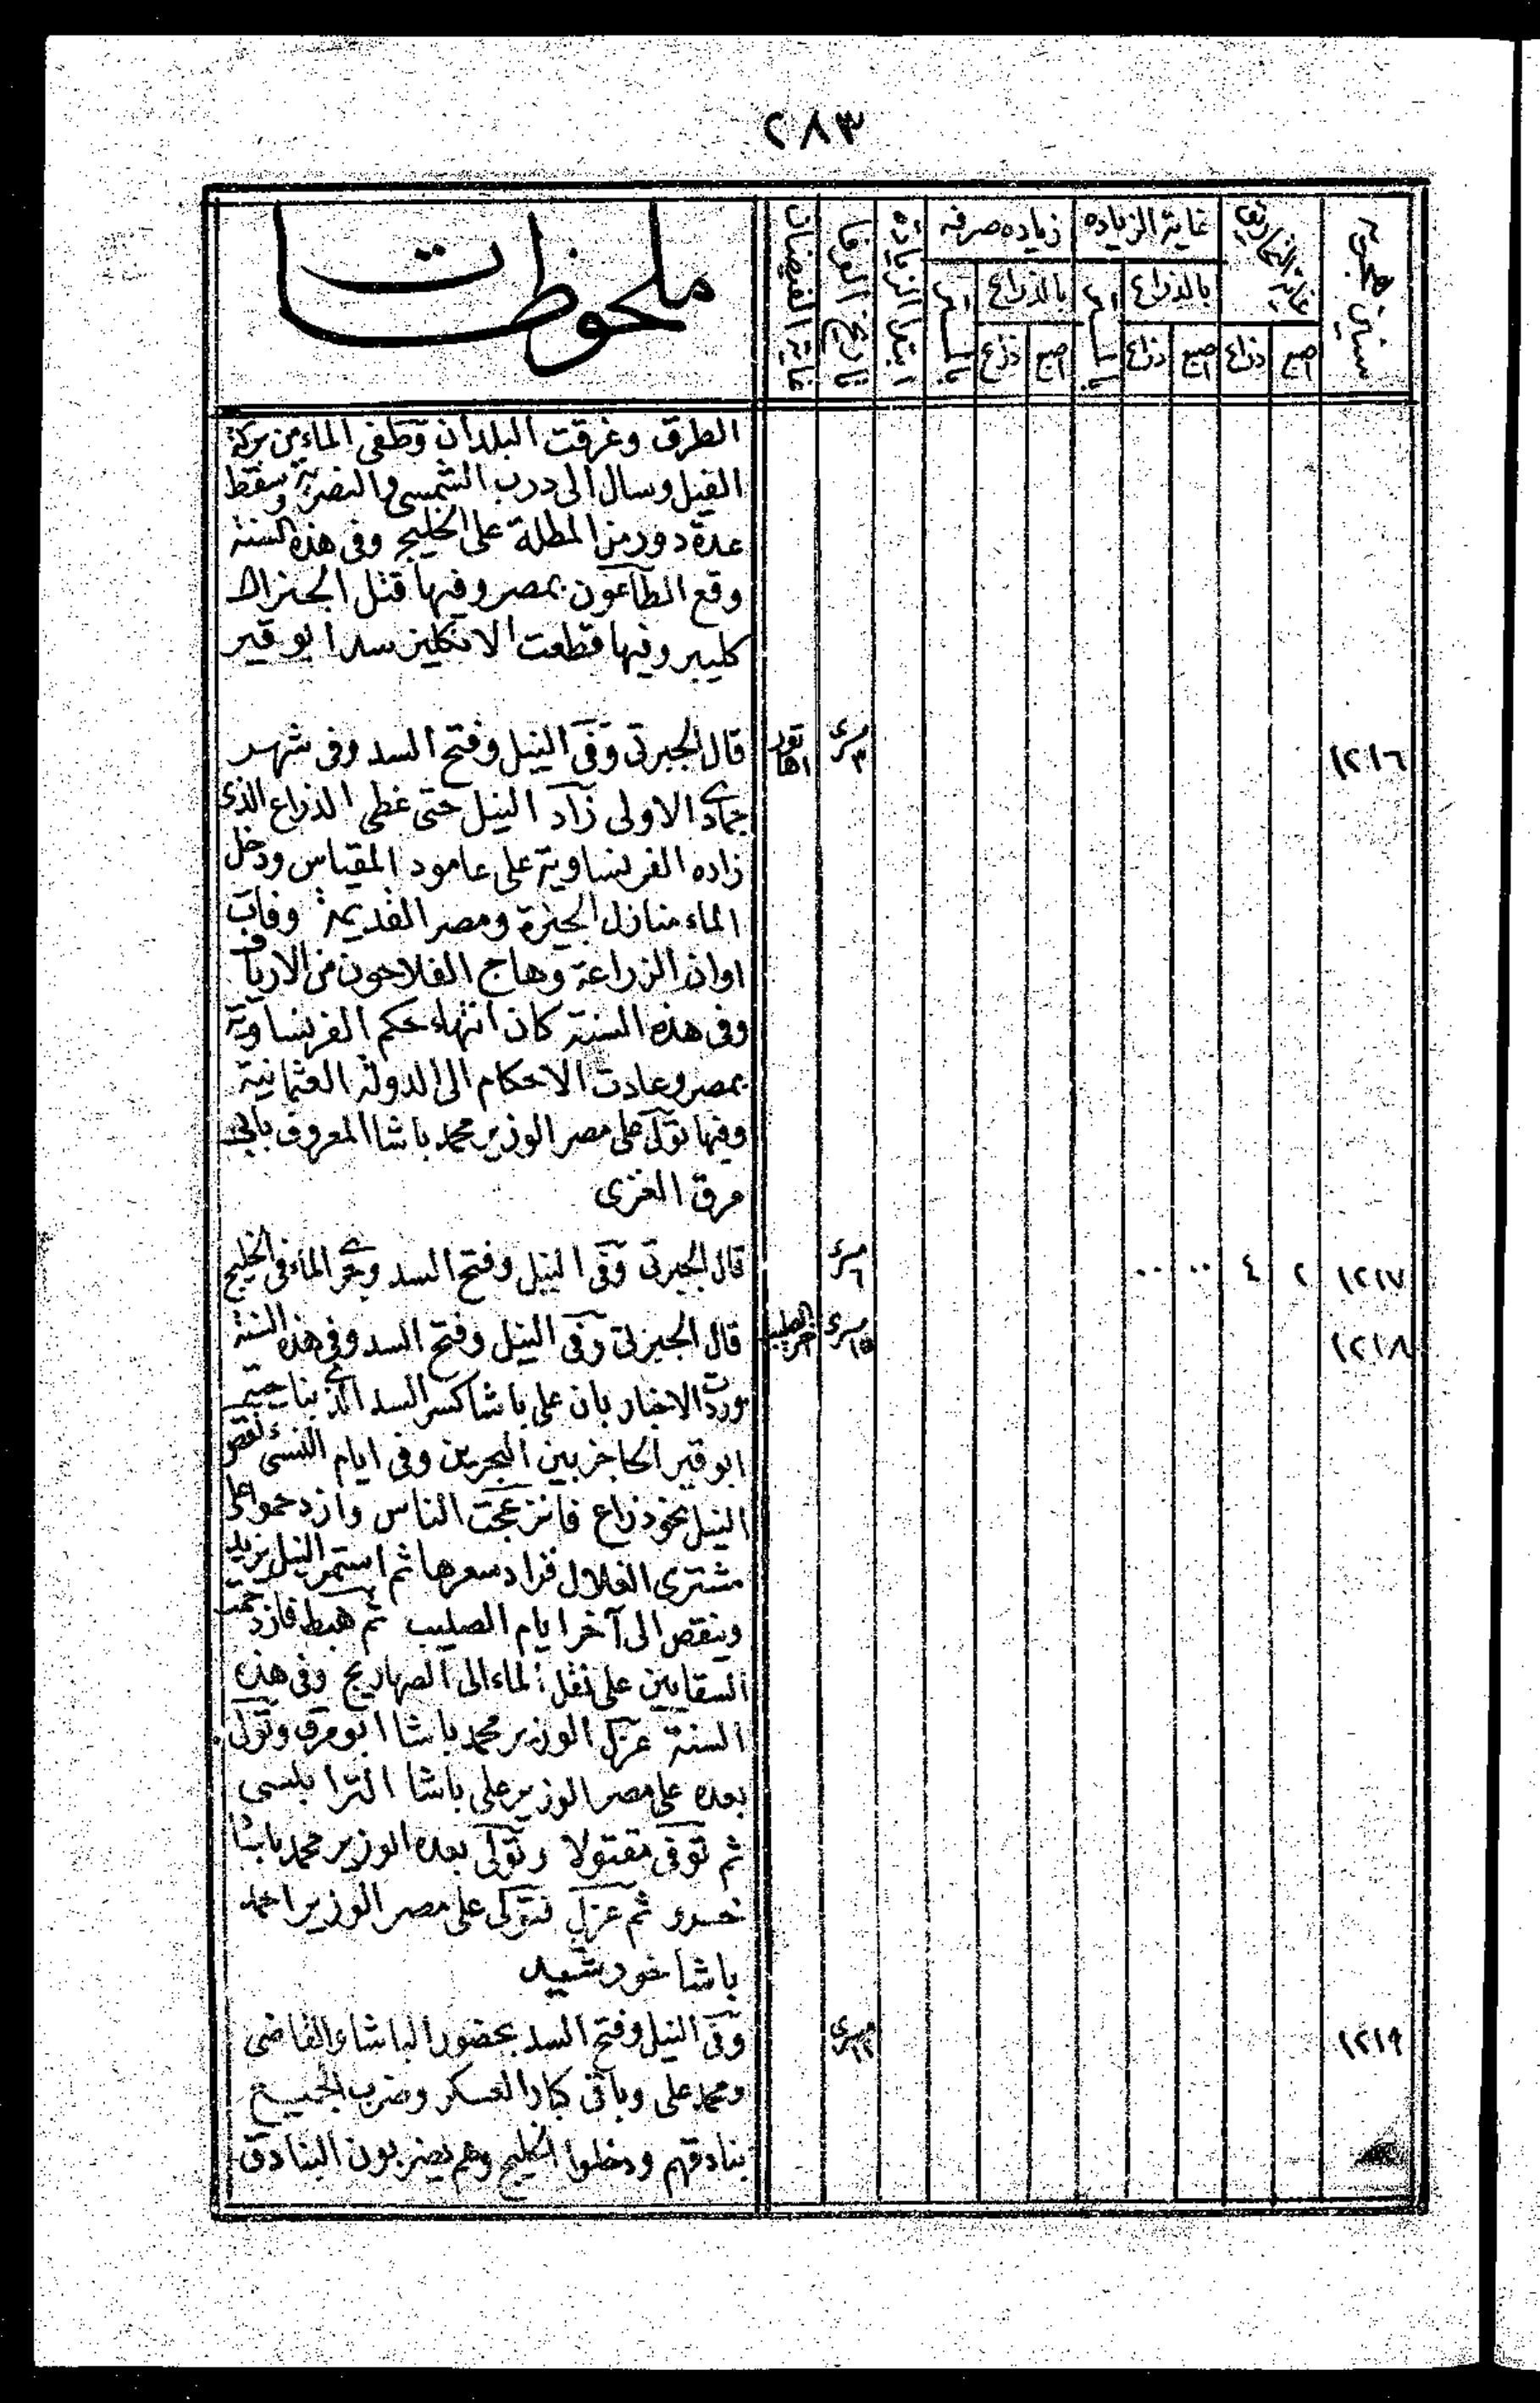 ٢٨٣
سنين هجرية
غاية التحاريق
غاية الزياده
زياده صرفه
ابتدا الزيادة
تاريخ الوفا
غاية الفيضان
ملحوظات
بالذراع
بالذراع
اصبع
ذراع
اصبع
ذراع
اصبع
ذراع
الطرق وغرقت البلدان وطفى الماء من بركة
الفيل وسال الى درب الشمسى والنصرية وسقط
عدة دور من المطلة على الخليج وفى هذه السنة
وقع الطاعون بمصر وفيها قتل الجنرال
كليبر وفيها قطعت الانكليز سد ابو قير
١٢١٦
مسرى ٣
قال الجبرتى وَفَى النيل وفتح السد وفى شهر
جمادى الاولى زاد النيل حتى غطى الذراع الذى
زاده الفرنساوية على عامود المقياس ودخل
الماء منازل الجيزة ومصر القديمة وفات
اوان الزراعة وهاج الفلاحون من الارياف
وفى هذه السنة كان انتهاء حكم الفرنساوية
بمصر وعادت الاحكام الى الدولة العثمانية
وفيها تولّى على مصر الوزير محمد باشا المعروف بابى
مرق الغزى
١٢١٧ ٢ ٤ ٠٠ ٠٠
مسرى ٦
قال الجبرتى وَفَى النيل وفتح السد وجرى الماء فى الخليج
١٢١٨
مسرى ١٥
اخر الصليب
قال الجبرتى وَفَى النيل وفتح السد وفى هذه السنة
وردت الاخبار بان على باشا كسر السد الذى بناحية
ابو قير الحاجز بين البحرين وفى ايام النسئ نقص
النيل نحو ذراع فانزعجت الناس وازدحموا على
مشترى الغلال فزاد سعرها ثم استمر النيل يزيد
وينقص الى آخر ايام الصليب ثم هبط فازدحمت
السقايين على نقل الماء الى الصهاريج وفى هذه
السنة عزل الوزير محمد باشا ابو مرق وتولّى
بعده على مصر الوزير على باشا الترابلسى
ثم توفى مقتولا وتولّى بعده الوزير محمد باشا
خسرو ثم عزل فتولّى على مصر الوزير احمد
باشا خورشيد
١٢١٩
مسرى ١٢
وَفَى النيل وفتح السد بحضور الباشا والقاضى
ومحمد على وباقى كبار العسكر وضرب الجميع
بنادقهم ودخلوا الخليج وهم يضربون البنادق